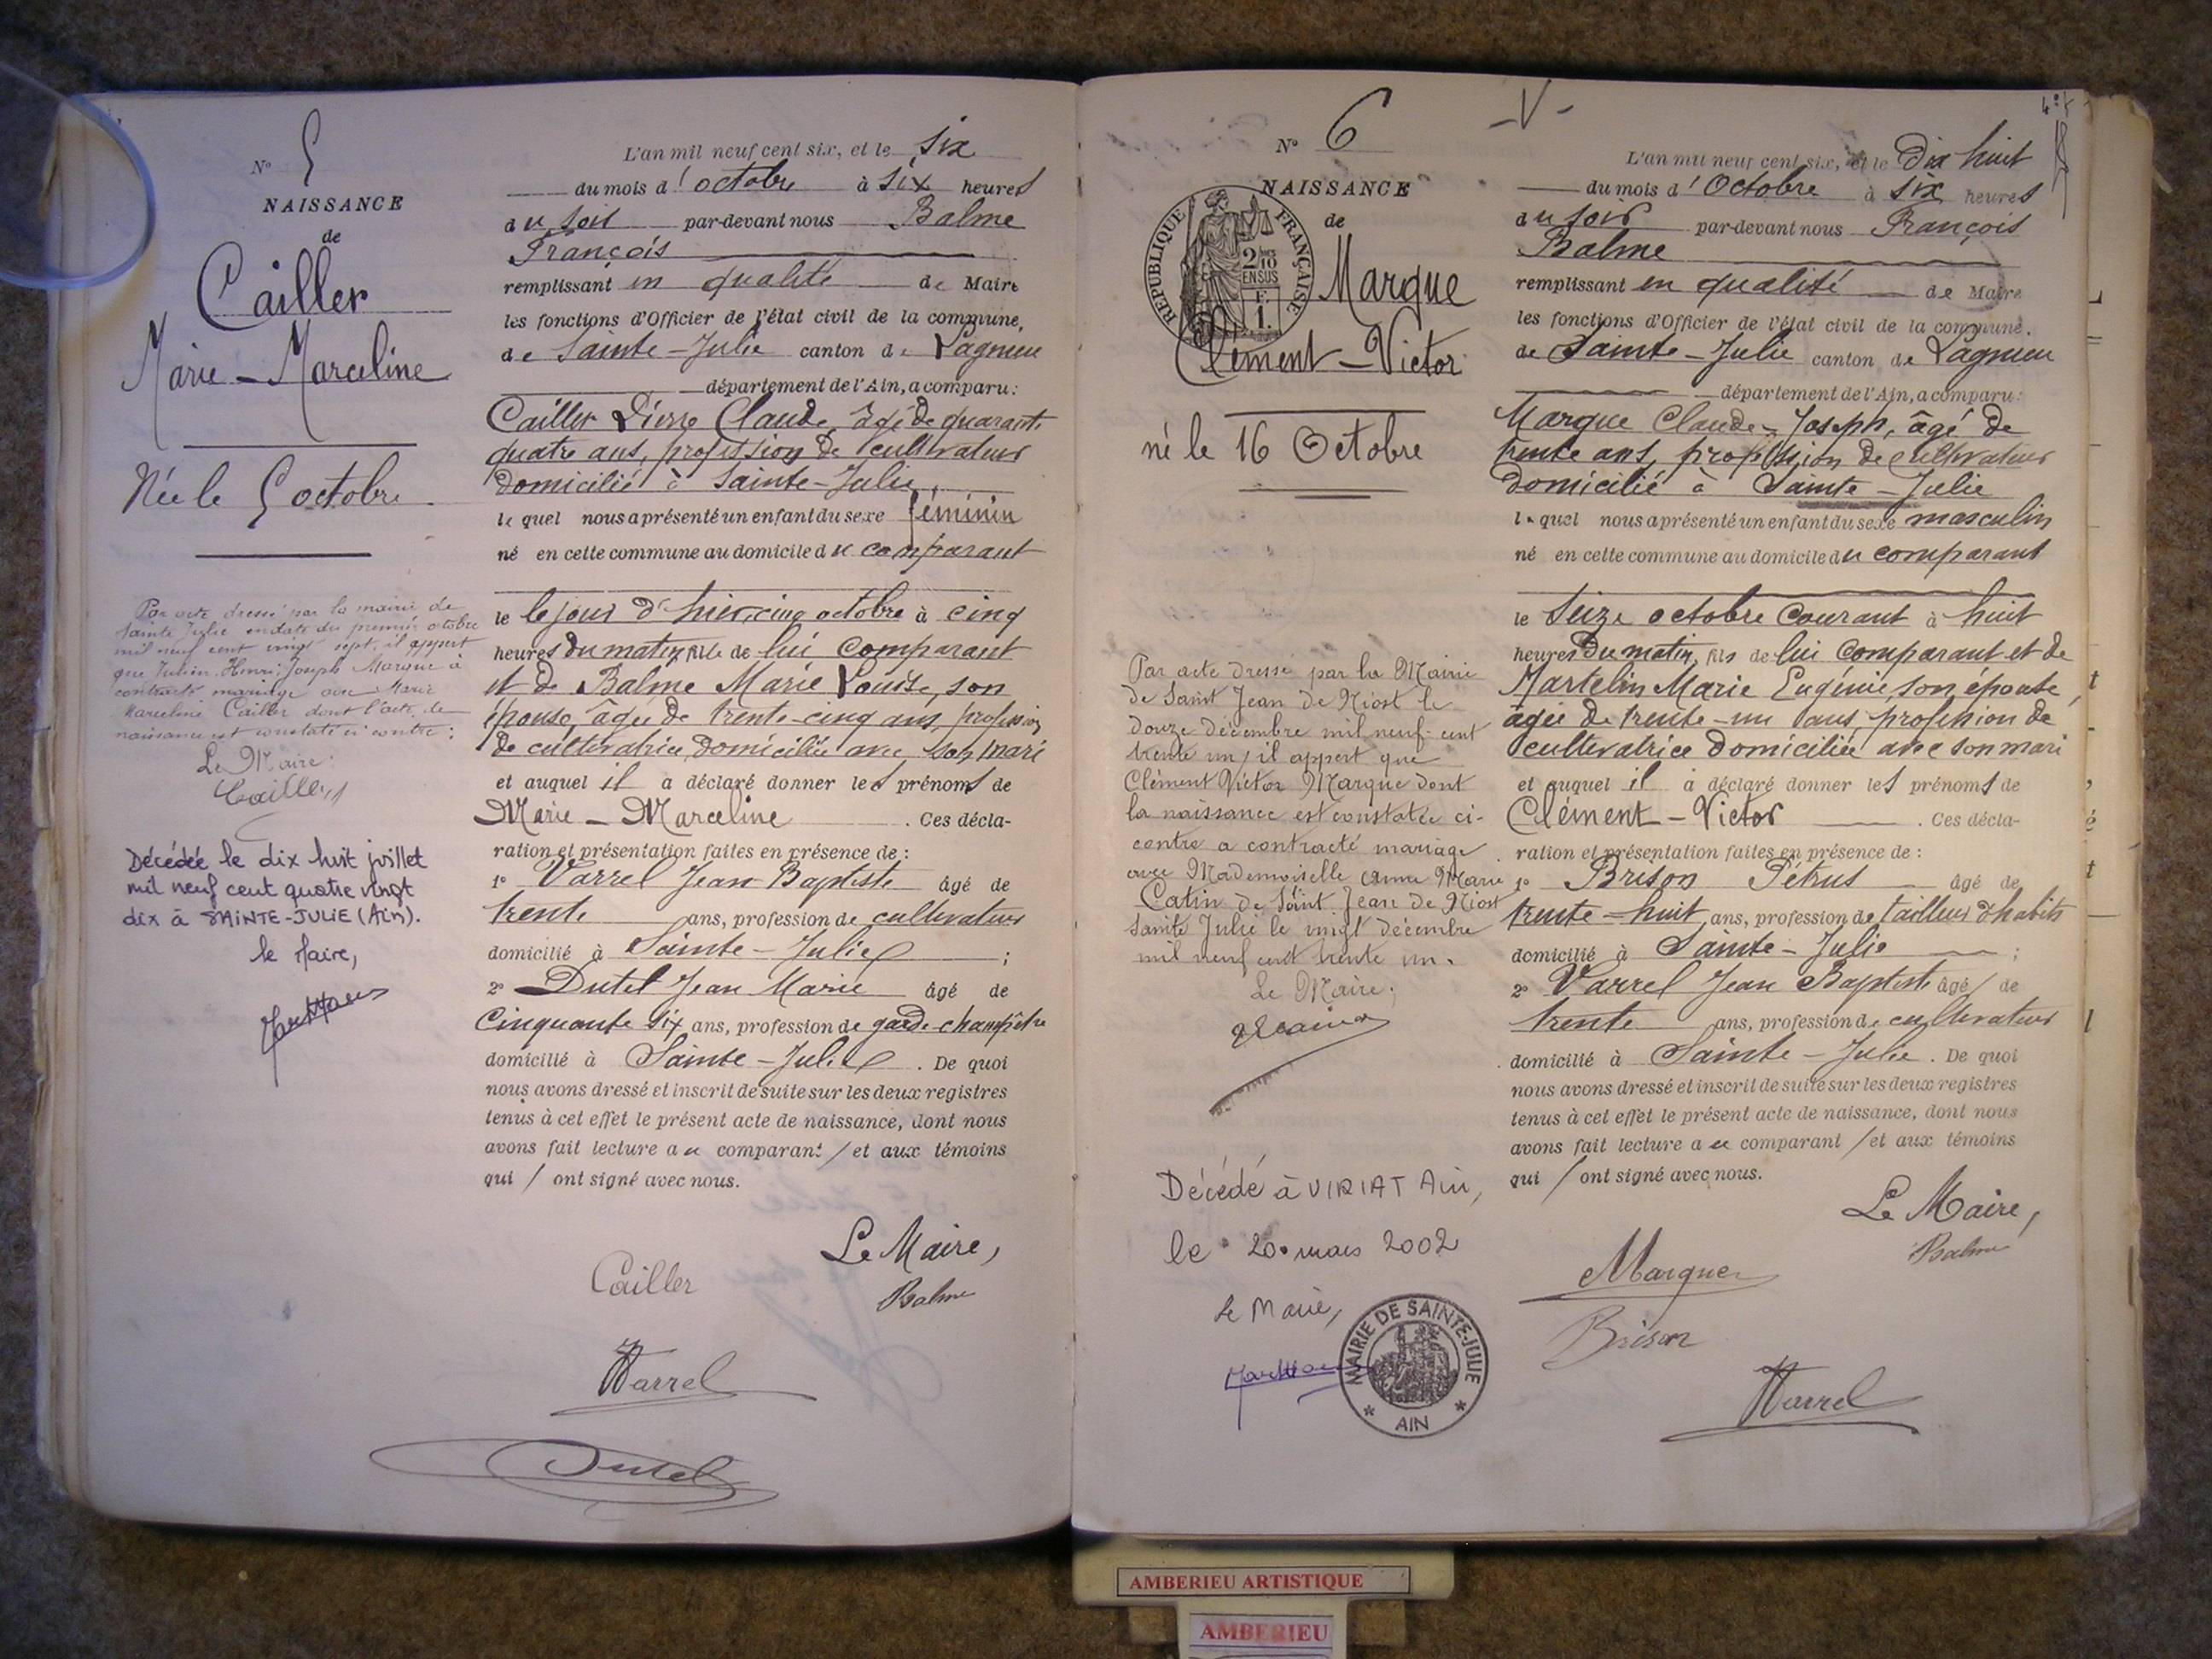 N° 5
NAISSANCE
de
Cailler
Marie - Marceline
Née le 5 octobre
Par acte dressé par la mairie de
Sainte Julie en date du premier octobre
mil neuf cent vingt sept, il appert
que Julien, Henri, Joseph Marque a
contracté mariage avec Marie
Marceline Cailler dont l'acte de
naissance est constaté ci contre :
Le Maire :
Cailler
Décédée le dix huit juillet
mil neuf cent quatre vingt
dix à SAINTE-JULIE (Ain).
le Maire,
L'an mil neuf cent six, et le six
du mois d'octobre à six heures
du soir par-devant nous Balme
François
remplissant en qualité de Maire
les fonctions d'Officier de l'état civil de la commune,
de Sainte-Julie canton de Lagnieu
département de l'Ain, a comparu :
Cailler Pierre Claude, âgé de quarante
quatre ans, profession de cultivateur
domicilié à Sainte-Julie,
lequel nous a présenté un enfant du sexe féminin
né en cette commune au domicile du comparant
le le jour d'hier, cinq octobre à cinq
heures du matin, fille de lui comparant
et de Balme Marie Louise, son
épouse, âgée de trente-cinq ans, profession
de cultivatrice, domiciliée avec son mari
et auquel il a déclaré donner les prénoms de
Marie - Marceline . Ces décla-
ration et présentation faites en présence de :
1° Varrel Jean Baptiste âgé de
trente ans, profession de cultivateur
domicilié à Sainte-Julie ;
2° Dutel Jean Marie âgé de
cinquante six ans, profession de garde-champêtre
domicilié à Sainte-Julie . De quoi
nous avons dressé et inscrit de suite sur les deux registres
tenus à cet effet le présent acte de naissance, dont nous
avons fait lecture au comparant / et aux témoins
qui / ont signé avec nous.
Le Maire,
Cailler
Balme
Varrel
Dutel
N° 6
NAISSANCE
de
REPUBLIQUE FRANÇAISE
2/10 EN SUS
Marque
Clément - Victor
né le 16 Octobre
Par acte dressé par la Mairie
de Saint Jean de Niost le
douze décembre mil neuf cent
trente un, il appert que
Clément Victor Marque dont
la naissance est constatée ci-
contre a contracté mariage
avec Mademoiselle Anna Marie
Catin de Saint Jean de Niost
Sainte Julie le vingt décembre
mil neuf cent trente un.
Le Maire,
Décédé à VIRIAT Ain,
le 20 mars 2002
le Maire,
MAIRIE DE SAINTE-JULIE
* AIN *
-V-
L'an mil neuf cent six, et le Dix huit
du mois d'Octobre à six heures
du soir par-devant nous François
Balme
remplissant en qualité de Maire
les fonctions d'Officier de l'état civil de la commune.
de Sainte-Julie canton de Lagnieu
département de l'Ain, a comparu :
Marque Claude-Joseph, âgé de
trente ans, profession de cultivateur
domicilié à Sainte-Julie
lequel nous a présenté un enfant du sexe masculin
né en cette commune au domicile du comparant
le seize octobre courant à huit
heures du matin, fils de lui comparant et de
Martelin Marie Eugénie, son épouse,
âgée de trente-un ans, profession de
cultivatrice domiciliée avec son mari
et auquel il a déclaré donner les prénoms de
Clément - Victor . Ces décla-
ration et présentation faites en présence de :
1° Brison Pétrus âgé de
trente-huit ans, profession de tailleur d'habits
domicilié à Sainte-Julie ;
2° Varrel Jean Baptiste âgé de
trente ans, profession de cultivateur
domicilié à Sainte-Julie . De quoi
nous avons dressé et inscrit de suite sur les deux registres
tenus à cet effet le présent acte de naissance, dont nous
avons fait lecture au comparant / et aux témoins
qui / ont signé avec nous.
Le Maire,
Balme
Marque
Brison
Varrel
AMBERIEU ARTISTIQUE
AMBERIEU